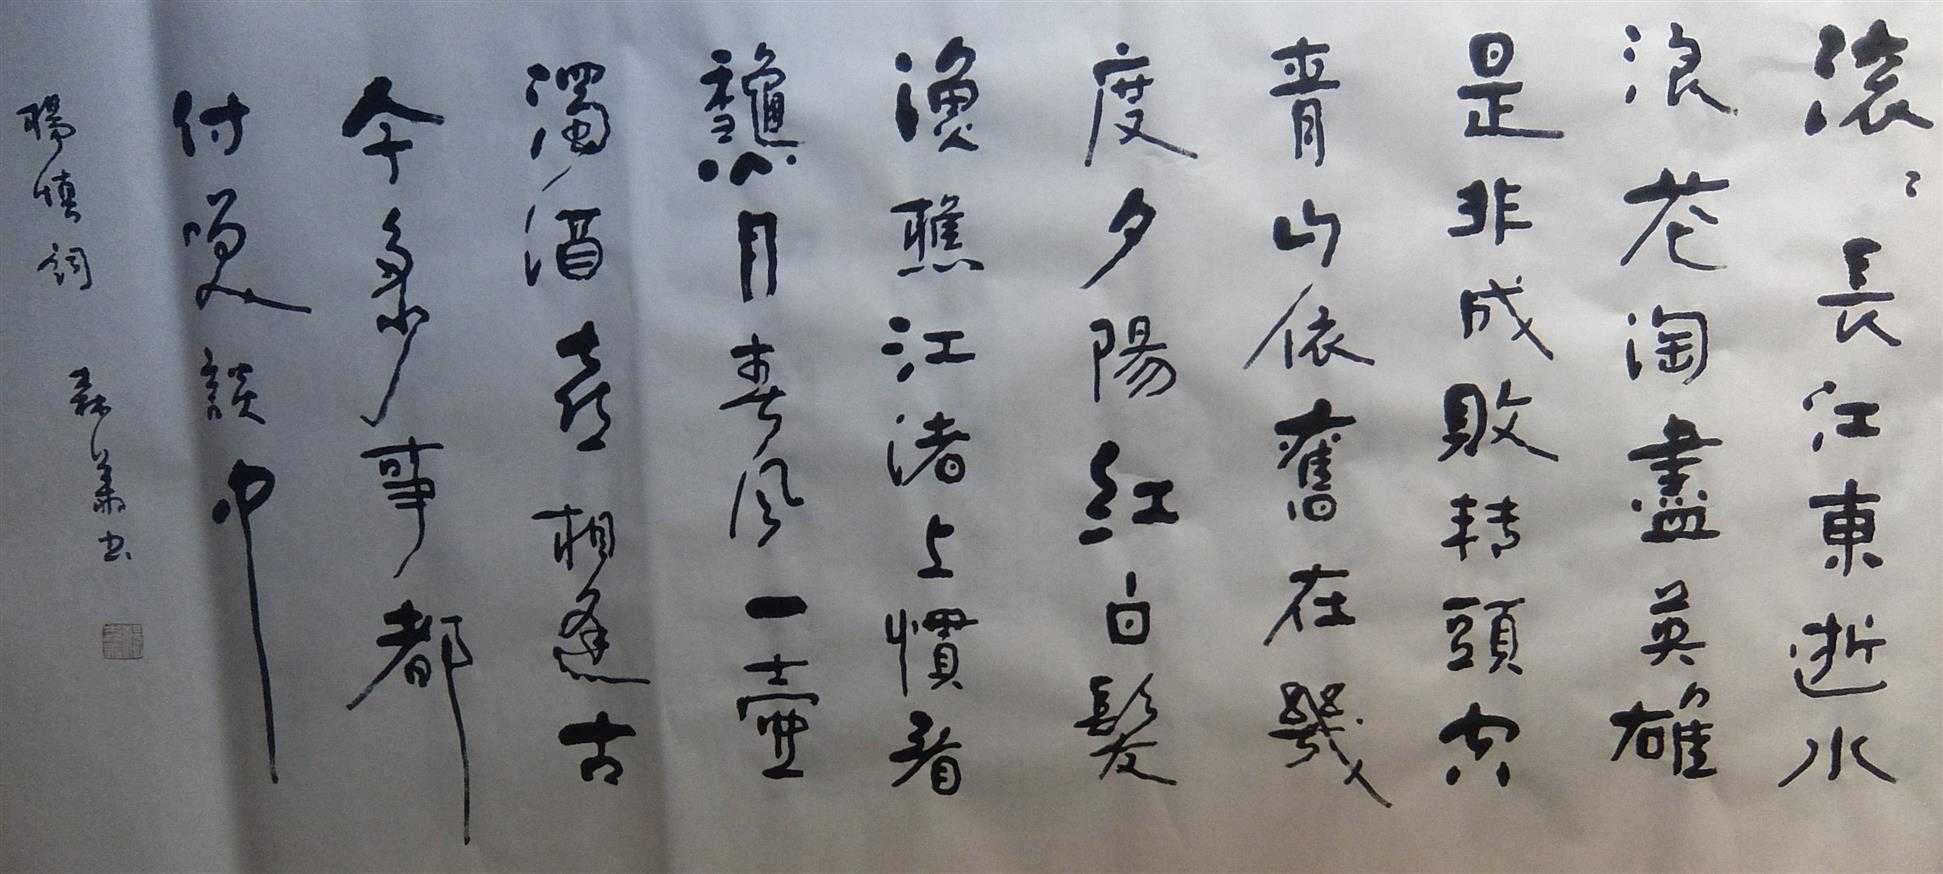 滚〻長江東逝水
浪花淘盡英雄
是非成敗转頭空
青山依舊在幾
度夕陽紅白髮
漁樵江渚上慣看
龝月春風一壷
濁酒喜相逢古
今多少事都
付笑談中
楊慎詞
書